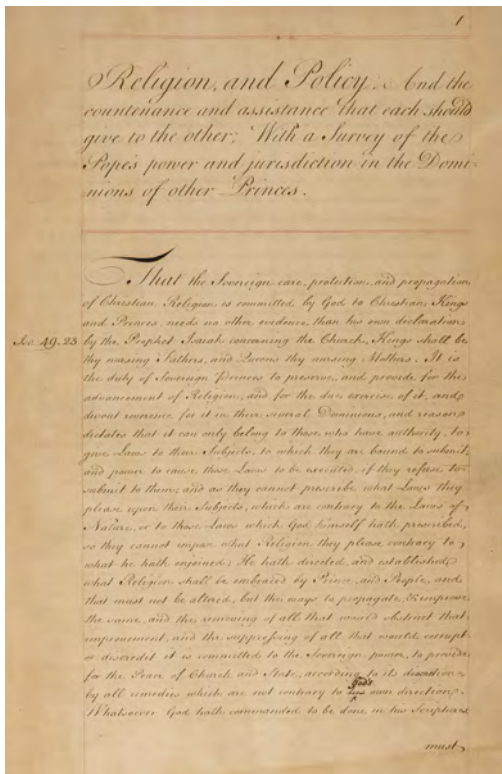 1
Religion, and Policy: And the
countenance and assistance that each should
give to the other; With a Survey of the
Pope's power and jurisdiction in the Domi-
nions of other Princes.
That the Sovereign care, protection, and propagation
of Christian Religion, is committed by God to Christian Kings
and Princes, needs no other evidence, than his own declaration
Isa. 49. 23 by the Prophet Isaiah concerning the Church, Kings shall be
thy nursing Fathers, and Queens thy nursing Mothers. It is
the duty of Sovereign Princes to preserve, and provide for the
advancement of Religion, and for the due exercise of it, and
devout reverence for it in their several Dominions, and reason
dictates that it can only belong to those who have authority, to
give Laws to their Subjects, to which they are bound to submit,
and power to cause those Laws to be executed, if they refuse to
submit to them; and as they cannot prescribe what Laws they
please upon their Subjects, which are contrary to the Laws of
Nature, or to those Laws which God himself hath prescribed,
so they cannot impose what Religion they please contrary to
what he hath enjoined; He hath directed, and established
what Religion shall be embraced by Prince, and People, and
that must not be altered, but the ways to propagate, & improve
the same, and the removing of all that would obstruct that
improvement, and the suppressing of all that would corrupt
or discredit it is committed to the Sovereign power, to provide
for the Peace of Church and State, according to its discretion
God's
by all remedies which are not contrary to his own direction.
Whatsoever God hath commanded to be done in his Scriptures
must